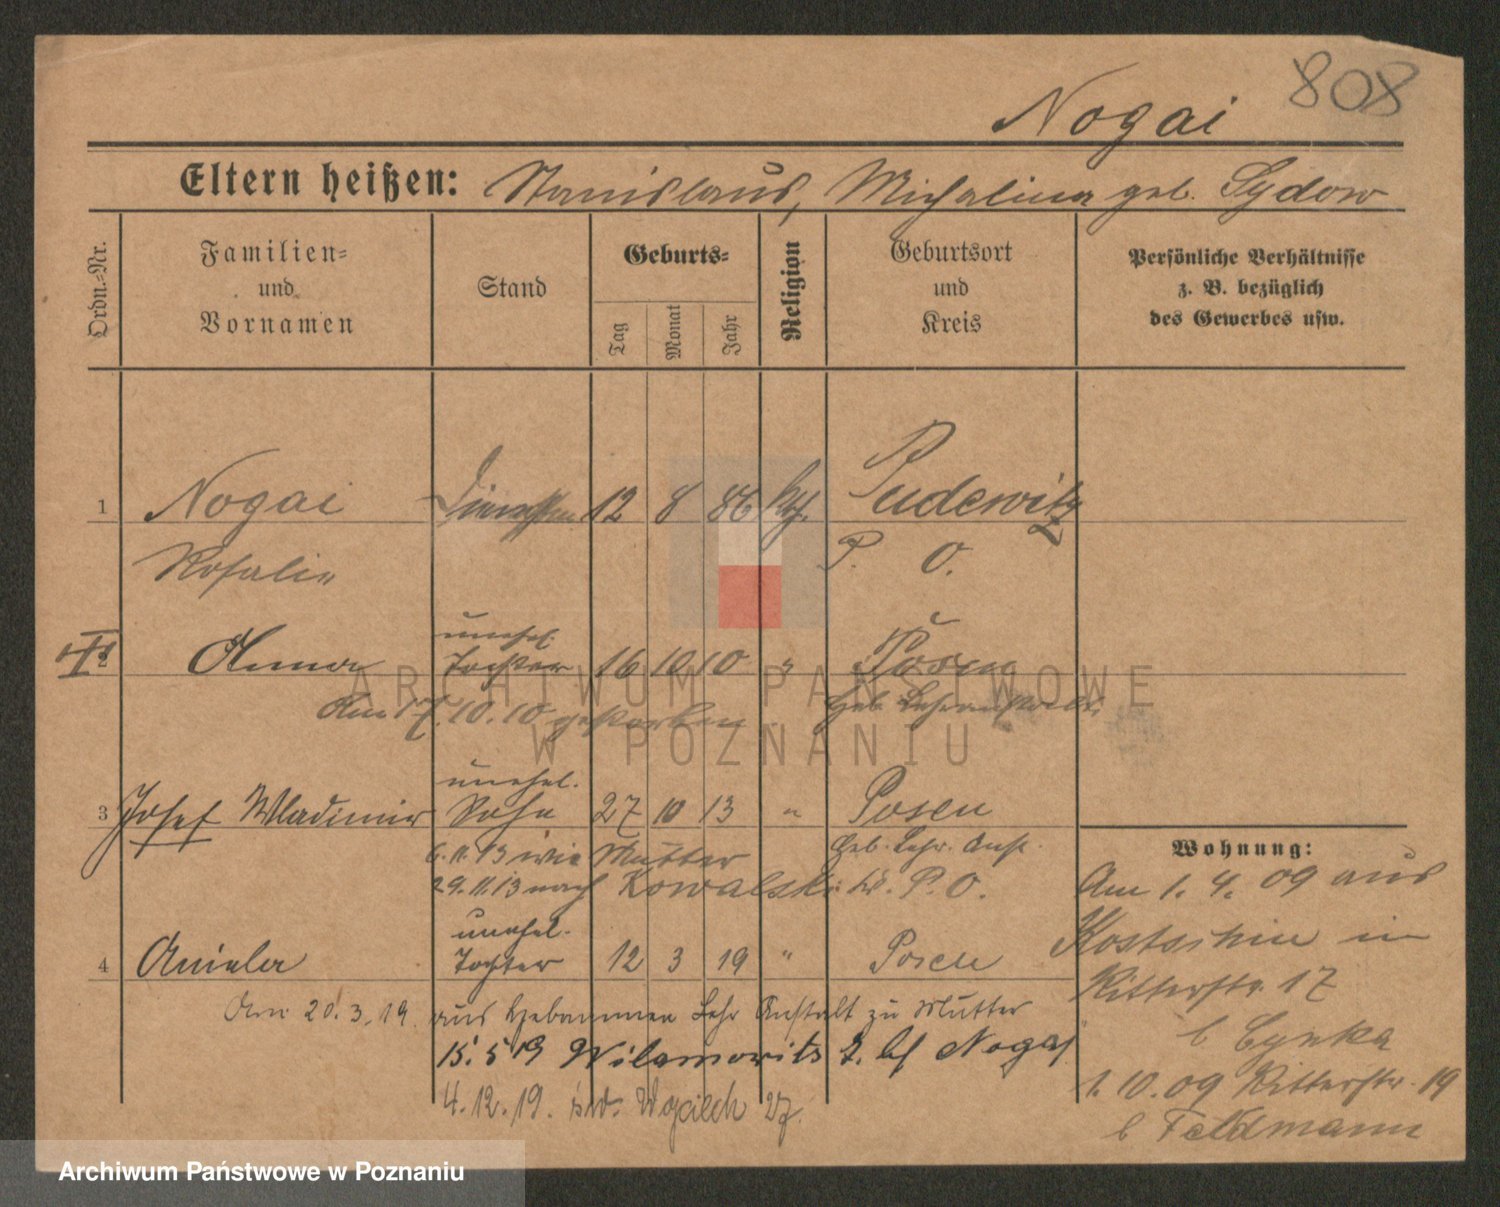 808
Nogai
Eltern heißen: Stanislaus, Michalina geb. Sydow
Ordn.-Nr.
Familien-
und
Vornamen
Stand
Geburts-
Tag
Monat
Jahr
Religion
Geburtsort
und
Kreis
Persönliche Verhältnisse
z. B. bezüglich
des Gewerbes usw.
1 Nogai 12 8 86 kth. Pudewitz
Rosalie P. O.
unehel.
2 Anna Tochter 16 10 10 " Posen
Am 17.10.10 gestorben Heb. Lehranstalt
unehel.
3 Josef Wladimir Sohn 27 10 13 " Posen
6.11.13 wie Mutter Heb. Lehr. Anst.
29.11.13 nach Kowalski P. O.
unehel.
4 Aniela Tochter 12 3 19 " Posen
Am 20.3.19. aus Hebammen Lehr Anstalt zu Mutter
15.5 19 Wilamowitz 2. bf Nogaj
4.12.19. św. Wojciech 27.
Wohnung:
Am 1. 4. 09 aus
Kostschin in
Ritterstr. 17
b Cynka
1. 10. 09 Ritterstr. 19
b Feldmann
ARCHIWUM PAŃSTWOWE
W POZNANIU
Archiwum Państwowe w Poznaniu